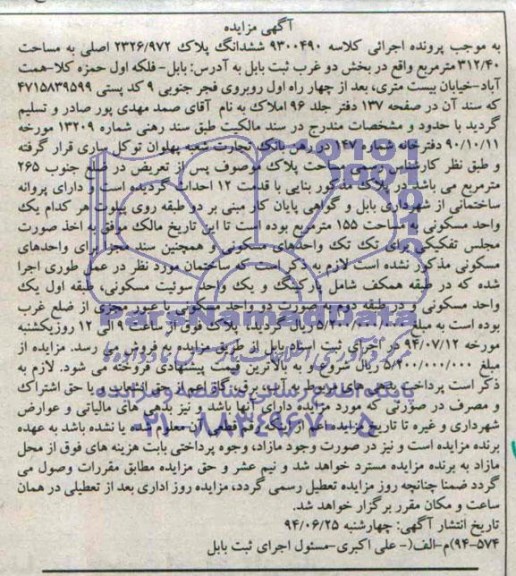 آگهی مزایده
به موجب پرونده اجرائی کلاسه ۹۳۰۰۴۹۰ ششدانگ پلاک ۲۳۲۶/۹۷۲ اصلی به مساحت
۳۱۲/۴۰ مترمربع واقع در بخش دو غرب ثبت بابل به آدرس: بابل- فلکه اول حمزه کلا-همت
آباد-خیابان بیست متری، بعد از چهار راه اول روبروی فجر جنوبی ۹ کد پستی ۴۷۱۵۸۳۹۵۹۹
که سند آن در صفحه ۱۳۷ دفتر جلد ۹۶ املاک به نام آقای صمد مهدی پور صادر و تسلیم
گردید با حدود و مشخصات مندرج در سند مالکیت طبق سند رهنی شماره ۱۳۲۰۹ مورخه
۹۰/۱۰/۱۱ دفترخانه شماره ۱۴۷ در رهن بانک تجارت شعبه پهلوان توکل ساری قرار گرفته
و طبق نظر کارشناس رسمی مساحت پلاک موصوف پس از تعریض در ضلع جنوب ۲۶۵
مترمربع می باشد در پلاک مذکور بنایی با قدمت ۱۲ احداث گردیده است و دارای پروانه
ساختمانی از شهرداری بابل و گواهی پایان کار مبنی بر دو طبقه روی پیلوت هر کدام یک
واحد مسکونی به مساحت ۱۵۵ مترمربع بوده است تا این تاریخ مالک موفق به اخذ صورت
مجلس تفکیکی برای تک تک واحدهای مسکونی و همچنین سند مجزا برای واحدهای
مسکونی مذکور نشده است لازم به ذکر است که ساختمان مورد نظر در عمل طوری اجرا
شده که در طبقه همکف شامل پارکینگ و یک واحد سوئیت مسکونی، طبقه اول یک
واحد مسکونی و در طبقه دوم به صورت دو واحد مسکونی با عبور مجزی از ضلع غرب
بوده است به مبلغ ۵/۲۰۰/۰۰۰/۰۰۰ ریال گردیده، پلاک فوق از ساعت ۹ الی ۱۲ روز یکشنبه
مورخه ۹۴/۰۷/۱۲ در اجرای ثبت اسناد بابل از طریق مزایده به فروش می رسد. مزایده از
مبلغ ۵/۲۰۰/۰۰۰/۰۰۰ ریال شروع و به بالاترین قیمت پیشنهادی فروخته می شود. لازم به
ذکر است پرداخت بدهی های مربوط به آب، برق، گاز اعم از حق انشعاب و یا حق اشتراک
و مصرف در صورتی که مورد مزایده دارای آنها باشد و نیز بدهی های مالیاتی و عوارض
شهرداری و غیره تا تاریخ مزایده اعم از اینکه رقم قطعی آن معلوم شده یا نشده باشد به عهده
برنده مزایده است و نیز در صورت وجود مازاد، وجوه پرداختی بابت هزینه های فوق از محل
مازاد به برنده مزایده مسترد خواهد شد و نیم عشر و حق مزایده مطابق مقررات وصول می
گردد ضمنا چنانچه روز مزایده تعطیل رسمی گردد، مزایده روز اداری بعد از تعطیلی در همان
ساعت و مکان مقرر برگزار خواهد شد.
تاریخ انتشار آگهی: چهارشنبه ۹۴/۰۶/۲۵
۹۴-۵۷۴)م-الف(- علی اکبری-مسئول اجرای ثبت بابل
ParsNamadData
پایگاه اطلاع رسانی مناقصه و مزایده
۰۲۱-۸۸۳۴۹۶۷۰-۵